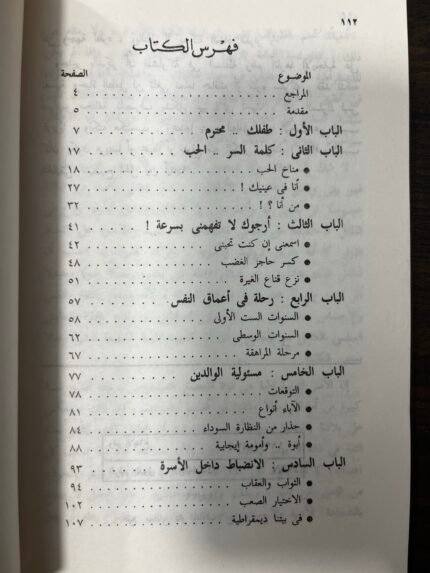 ١١٢
فهرس الكتاب
الموضوع الصفحة
المراجع ٤
مقدمة ٥
الباب الأول : طفلك .. محترم ٧
الباب الثانى : كلمة السر .. الحب ١٧
● مناخ الحب ١٨
● أنا فى عينيك ! ٢٧
● من أنا ؟ ! ٣٢
الباب الثالث : أرجوك لا تفهمنى بسرعة ! ٤١
● اسمعنى إن كنت تحبنى ٤٢
● كسر حاجز الغضب ٤٨
● نزع قناع الغيرة ٥١
الباب الرابع : رحلة فى أعماق النفس ٥٧
● السنوات الست الأولى ٥٨
● السنوات الوسطى ٦٢
● مرحلة المراهقة ٦٧
الباب الخامس : مسئولية الوالدين ٧٧
● التوقعات ٧٨
● الآباء أنواع ٨١
● حذار من النظارة السوداء ٨٤
● أبوة .. وأمومة إيجابية ٨٨
الباب السادس : الانضباط داخل الأسرة ٩٣
● الثواب والعقاب ٩٤
● الاختيار الصعب ١٠٢
● فى بيتنا ديمقراطية ١٠٧